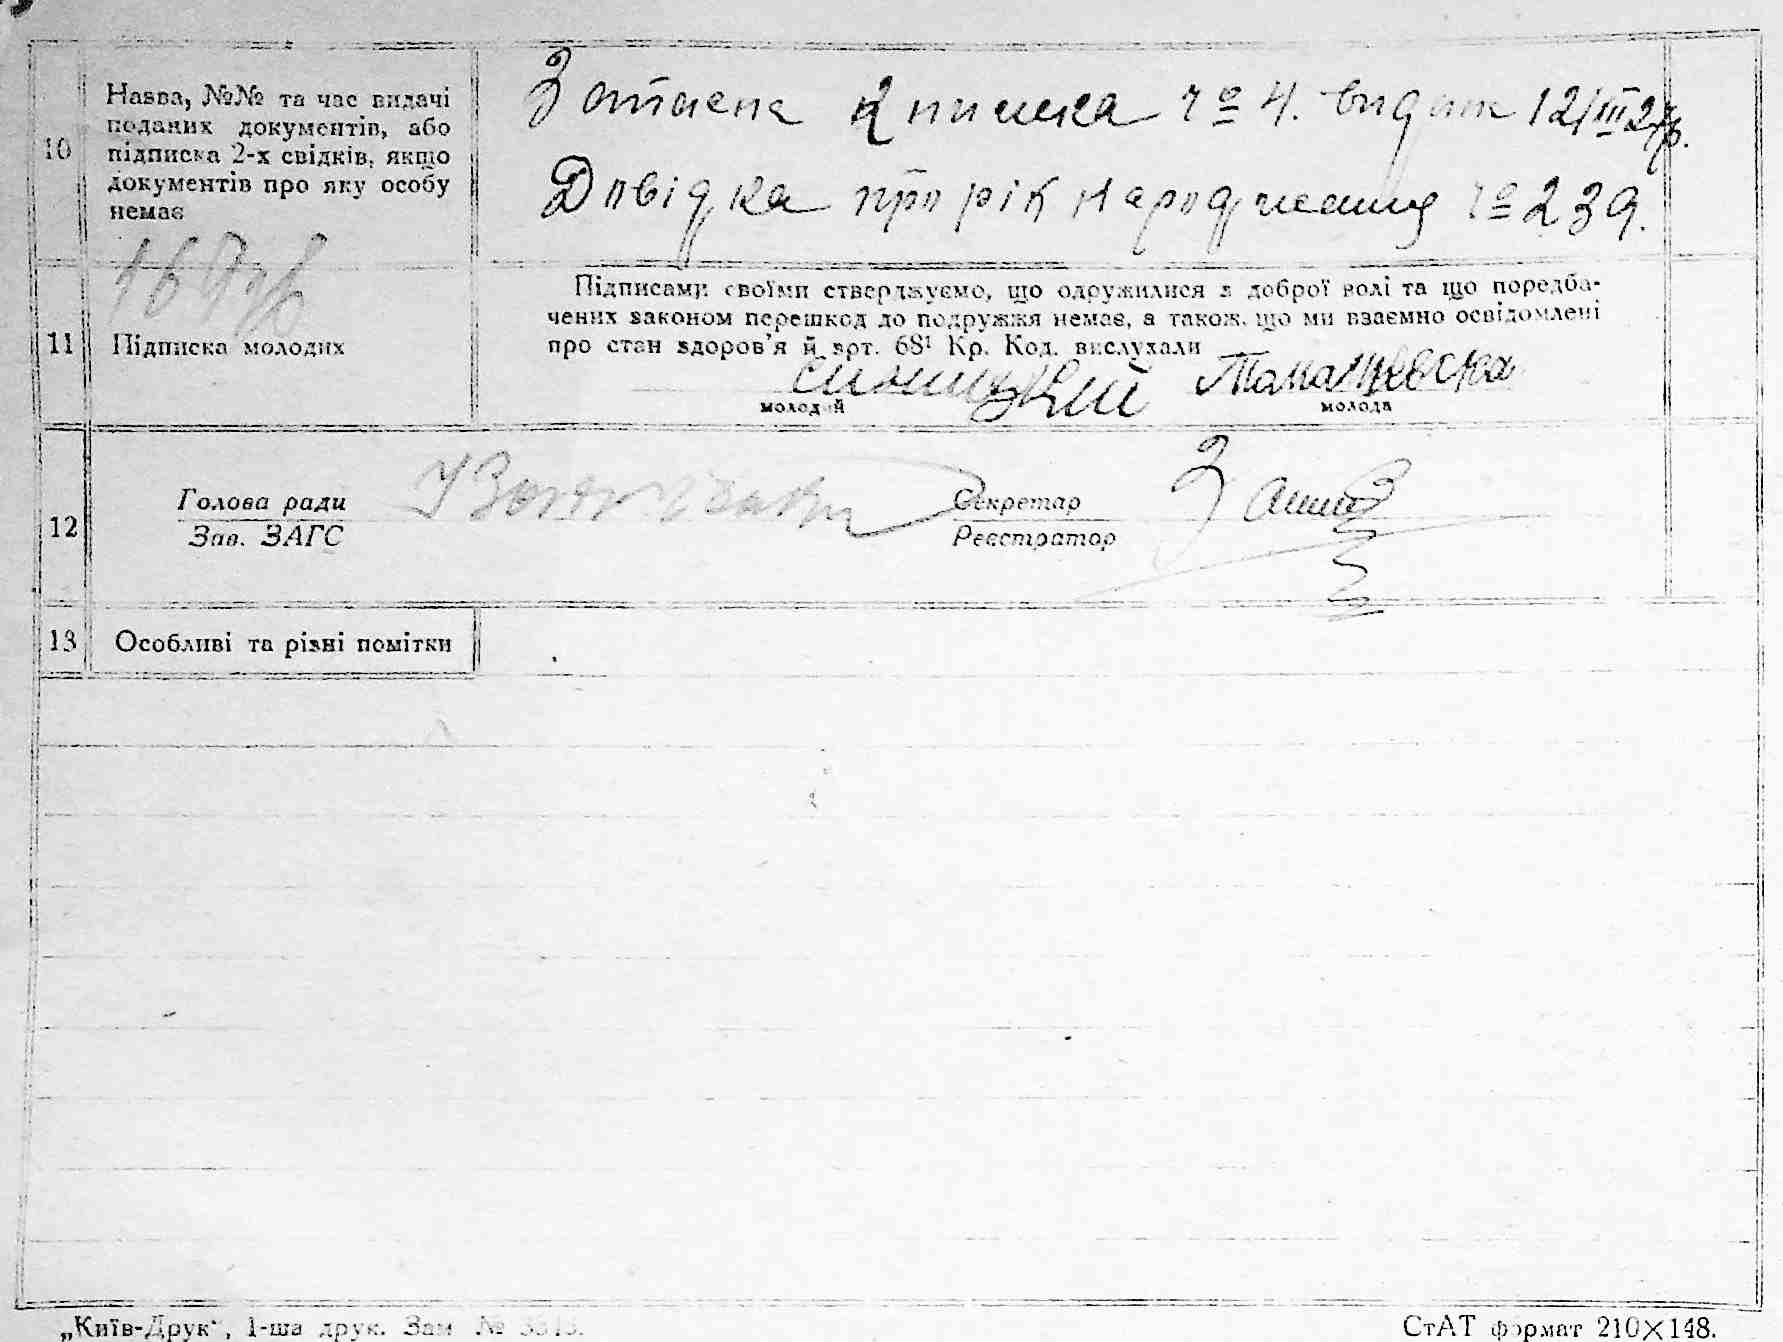 10
Назва, №№ та час видачі
поданих документів, або
підписка 2-х свідків, якщо
документів про яку особу
немає
Запасна книжка № 4. видана 12/III 27р.
Довідка про рік народження № 239.
11
Підписка молодих
Підписами своїми стверджуємо, що одружилися з доброї волі та що передба-
чених законом перешкод до подружжя немає, а також, що ми взаємно освідомлені
про стан здоров'я й арт. 68¹ Кр. Код. вислухали
Томашевска
молодий молода
12
Голова ради Секретар
Зав. ЗАГС Реєстратор
13 Особливі та різні помітки
„Київ-Друк“, 1-ша друк. Зам №
СтАТ формат 210×148.